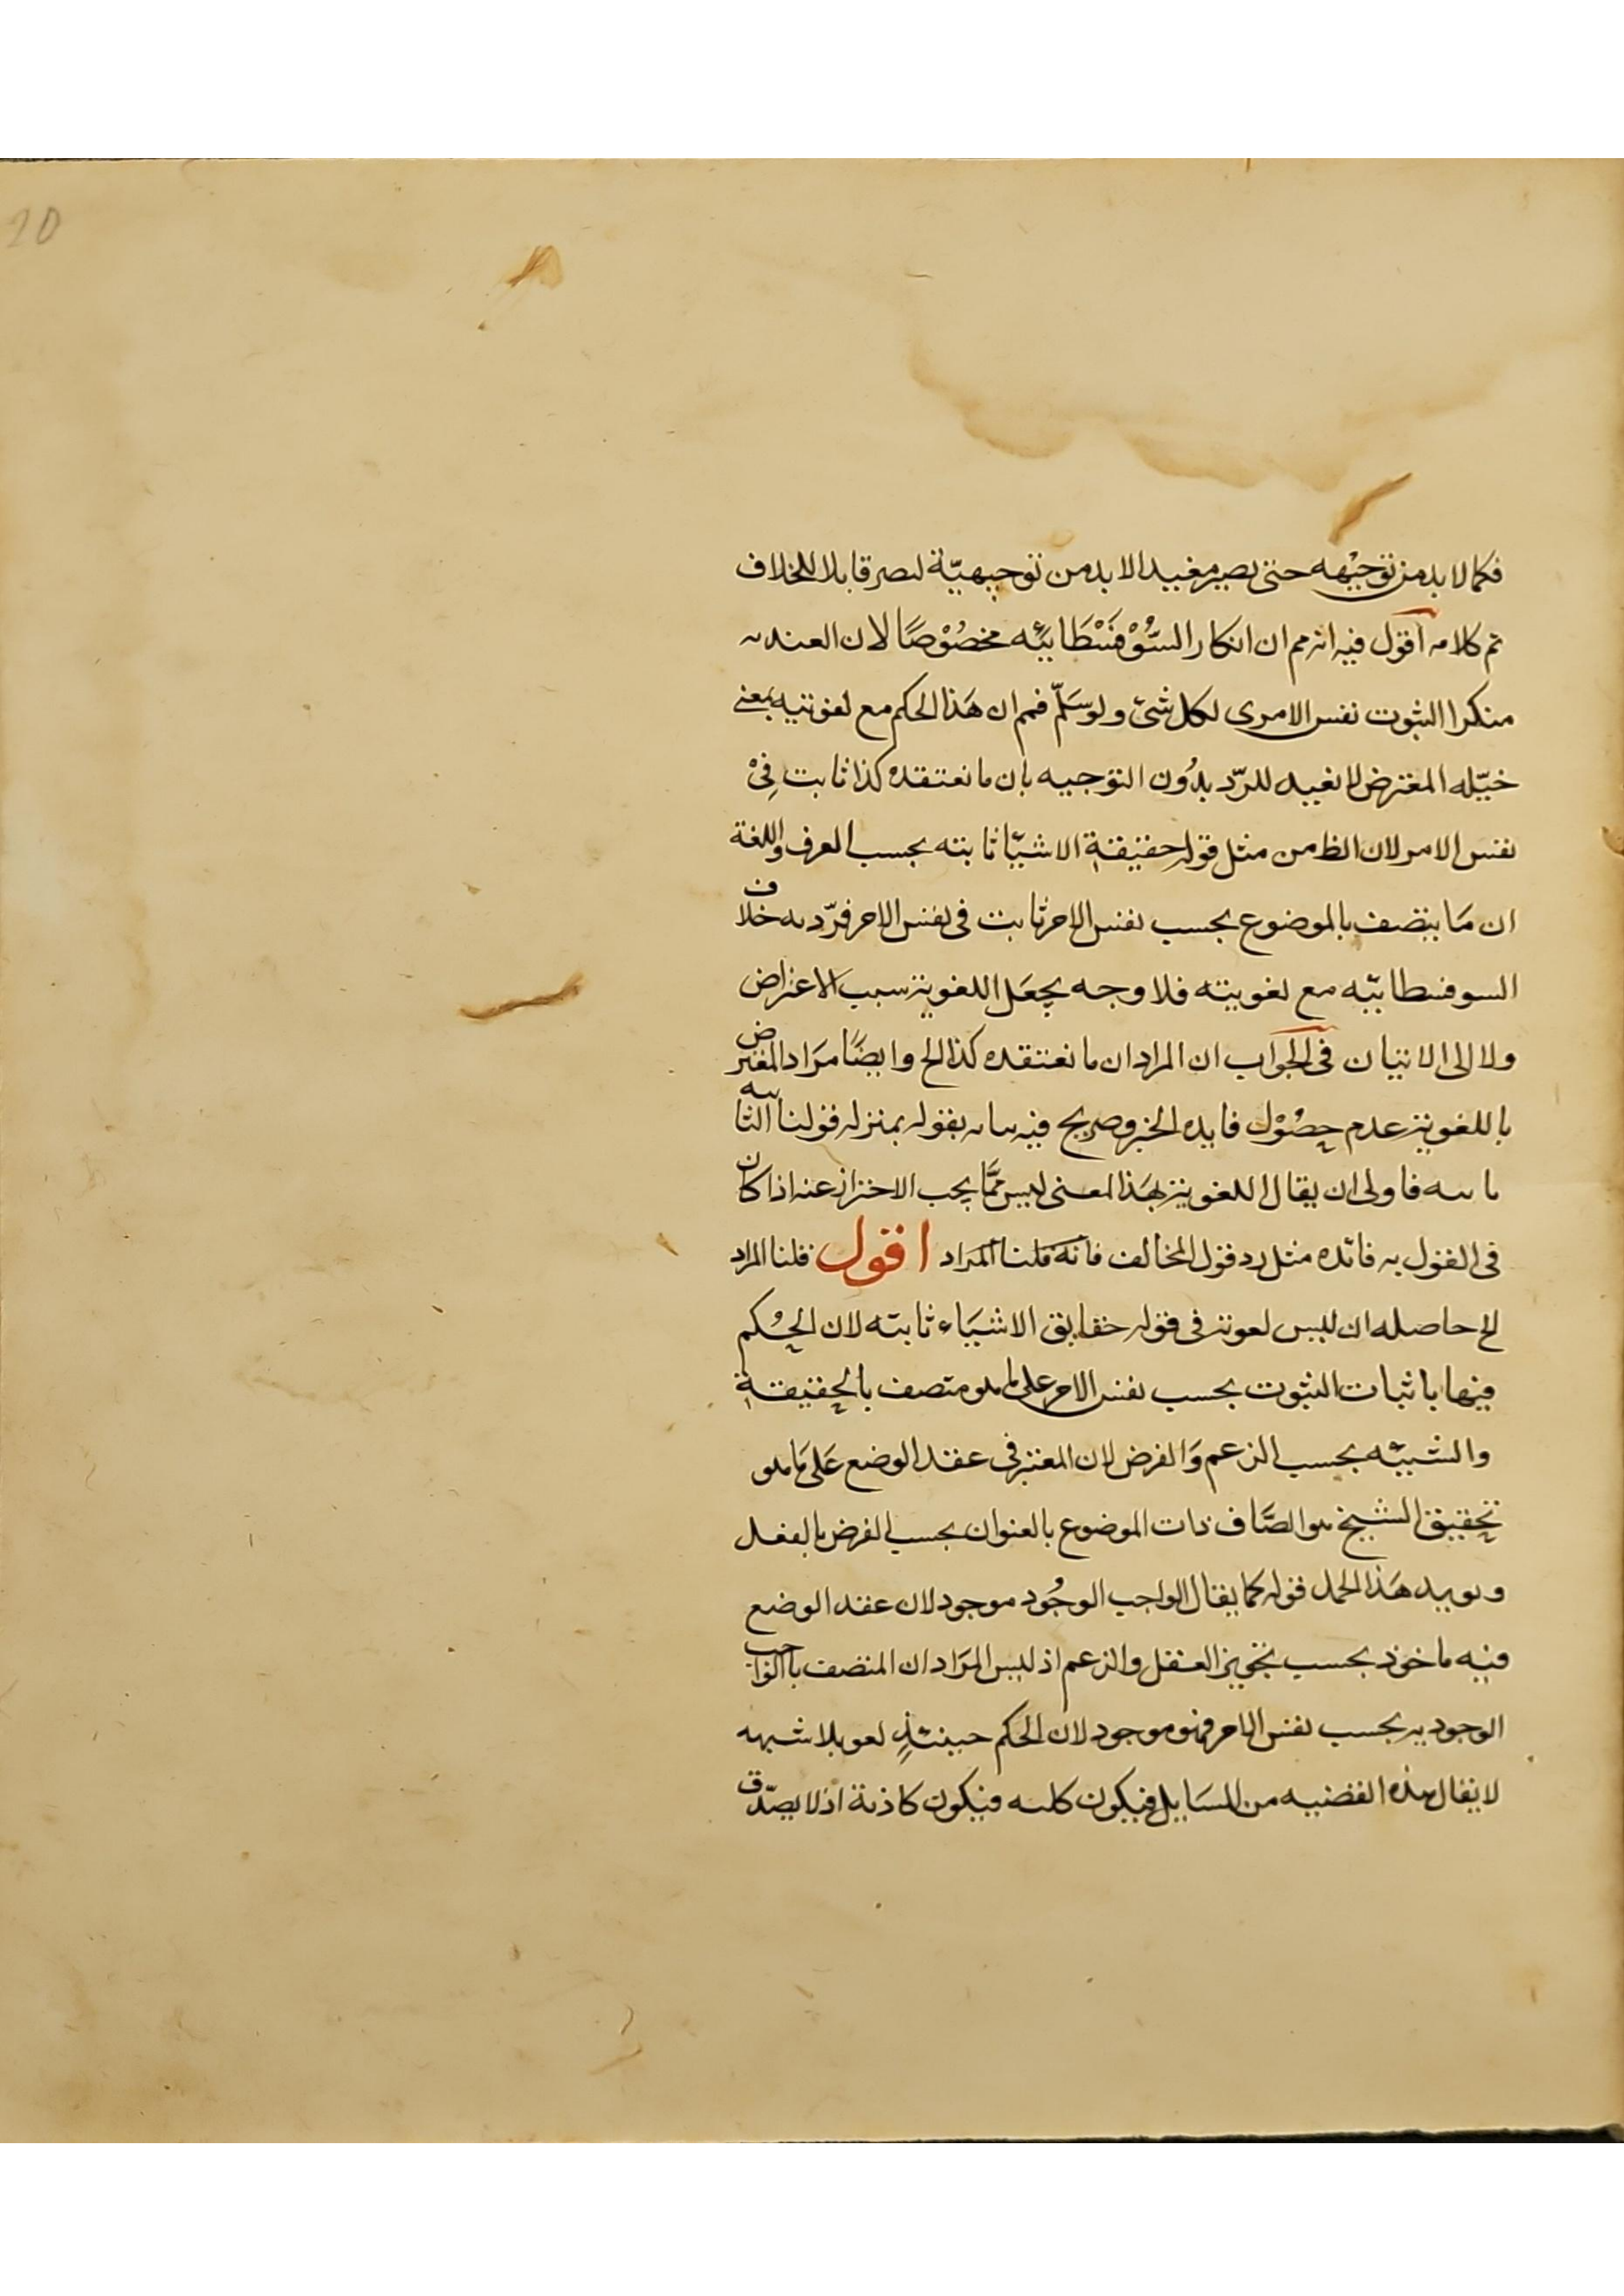 20
فكما لا بد من توجيهه حتى يصير مفيدا لا بد من توجيهيّة لىصر قابلا للخلاف
تم كلامه اقول فيه انه مم ان انكار السُّوْفَسْطَائيَّه مخصُوْصًا لان العنديه
منكر الثبوت نفس الامرى لكل شئ ولو سَلّم فمم ان هَذا الحكم مع لغوتيه بمعنى
خيّله المعترض لا نفيد للردّ بدُون التوجيه بان ما نعتقده كذا ثابت فِىْ
نفس الامر لان الظ من مثل قوله حقيقة الاشيَا ثابته بحسب العرف واللغة
ان مَا يتصف بالموضوع بحسب نفس الامر ثابت فى نفس الامر فردّ به خلاف
السوفسطائيّه مع لغويته فلا وجه بجعَل اللغوية سبب الاعتراض
ولا الى الاتيان فى الجوَاب ان المراد ان ما نعتقده كذا الخ وايضًا مرَاد المعترض
باللغوية عدم حصُوْل فايده الخبر وصريح فيه بيانه بقوله بمنزله قولنا الثابته
ثابته فاولى ان يقال اللغوية بهَذا المعنى ليس ممَّا يجب الاحتراز عنه اذا كان
فى القول به فائده مثل رد قول المخالف فانه قلنا المراد اقول قلنا المراد
الخ حاصله ان ليس لغوية فى قوله حقايق الاشيَاء ثابته لان الحُكم
فيها باثبات الثبوت بحسب نفس الامر على ما هو متصف بالحقيقة
والشيئيه بحسب الزعم وَالفرض لان المعتبر فى عقد الوضع عَلى مَا هو
تحقيق الشيخ هو اتصَّاف ذات الموضوع بالعنوان بحسب الفرض بالفعل
ويويد هَذا الحمل قوله كما يقال الواجب الوجُود موجود لان عقد الوضع
فيه ماخوذ بحسب تجويز العقل والزعم اذ ليس المرَاد ان المتصف بالواجب
الوجوديه بحسب نفس الامر فهو موجود لان الحكم حينئذٍ لغو بلا شبهه
لا يقال هذه القضيه من المسَايل فيكون كليه فيكون كاذبة اذ لا يصدّق